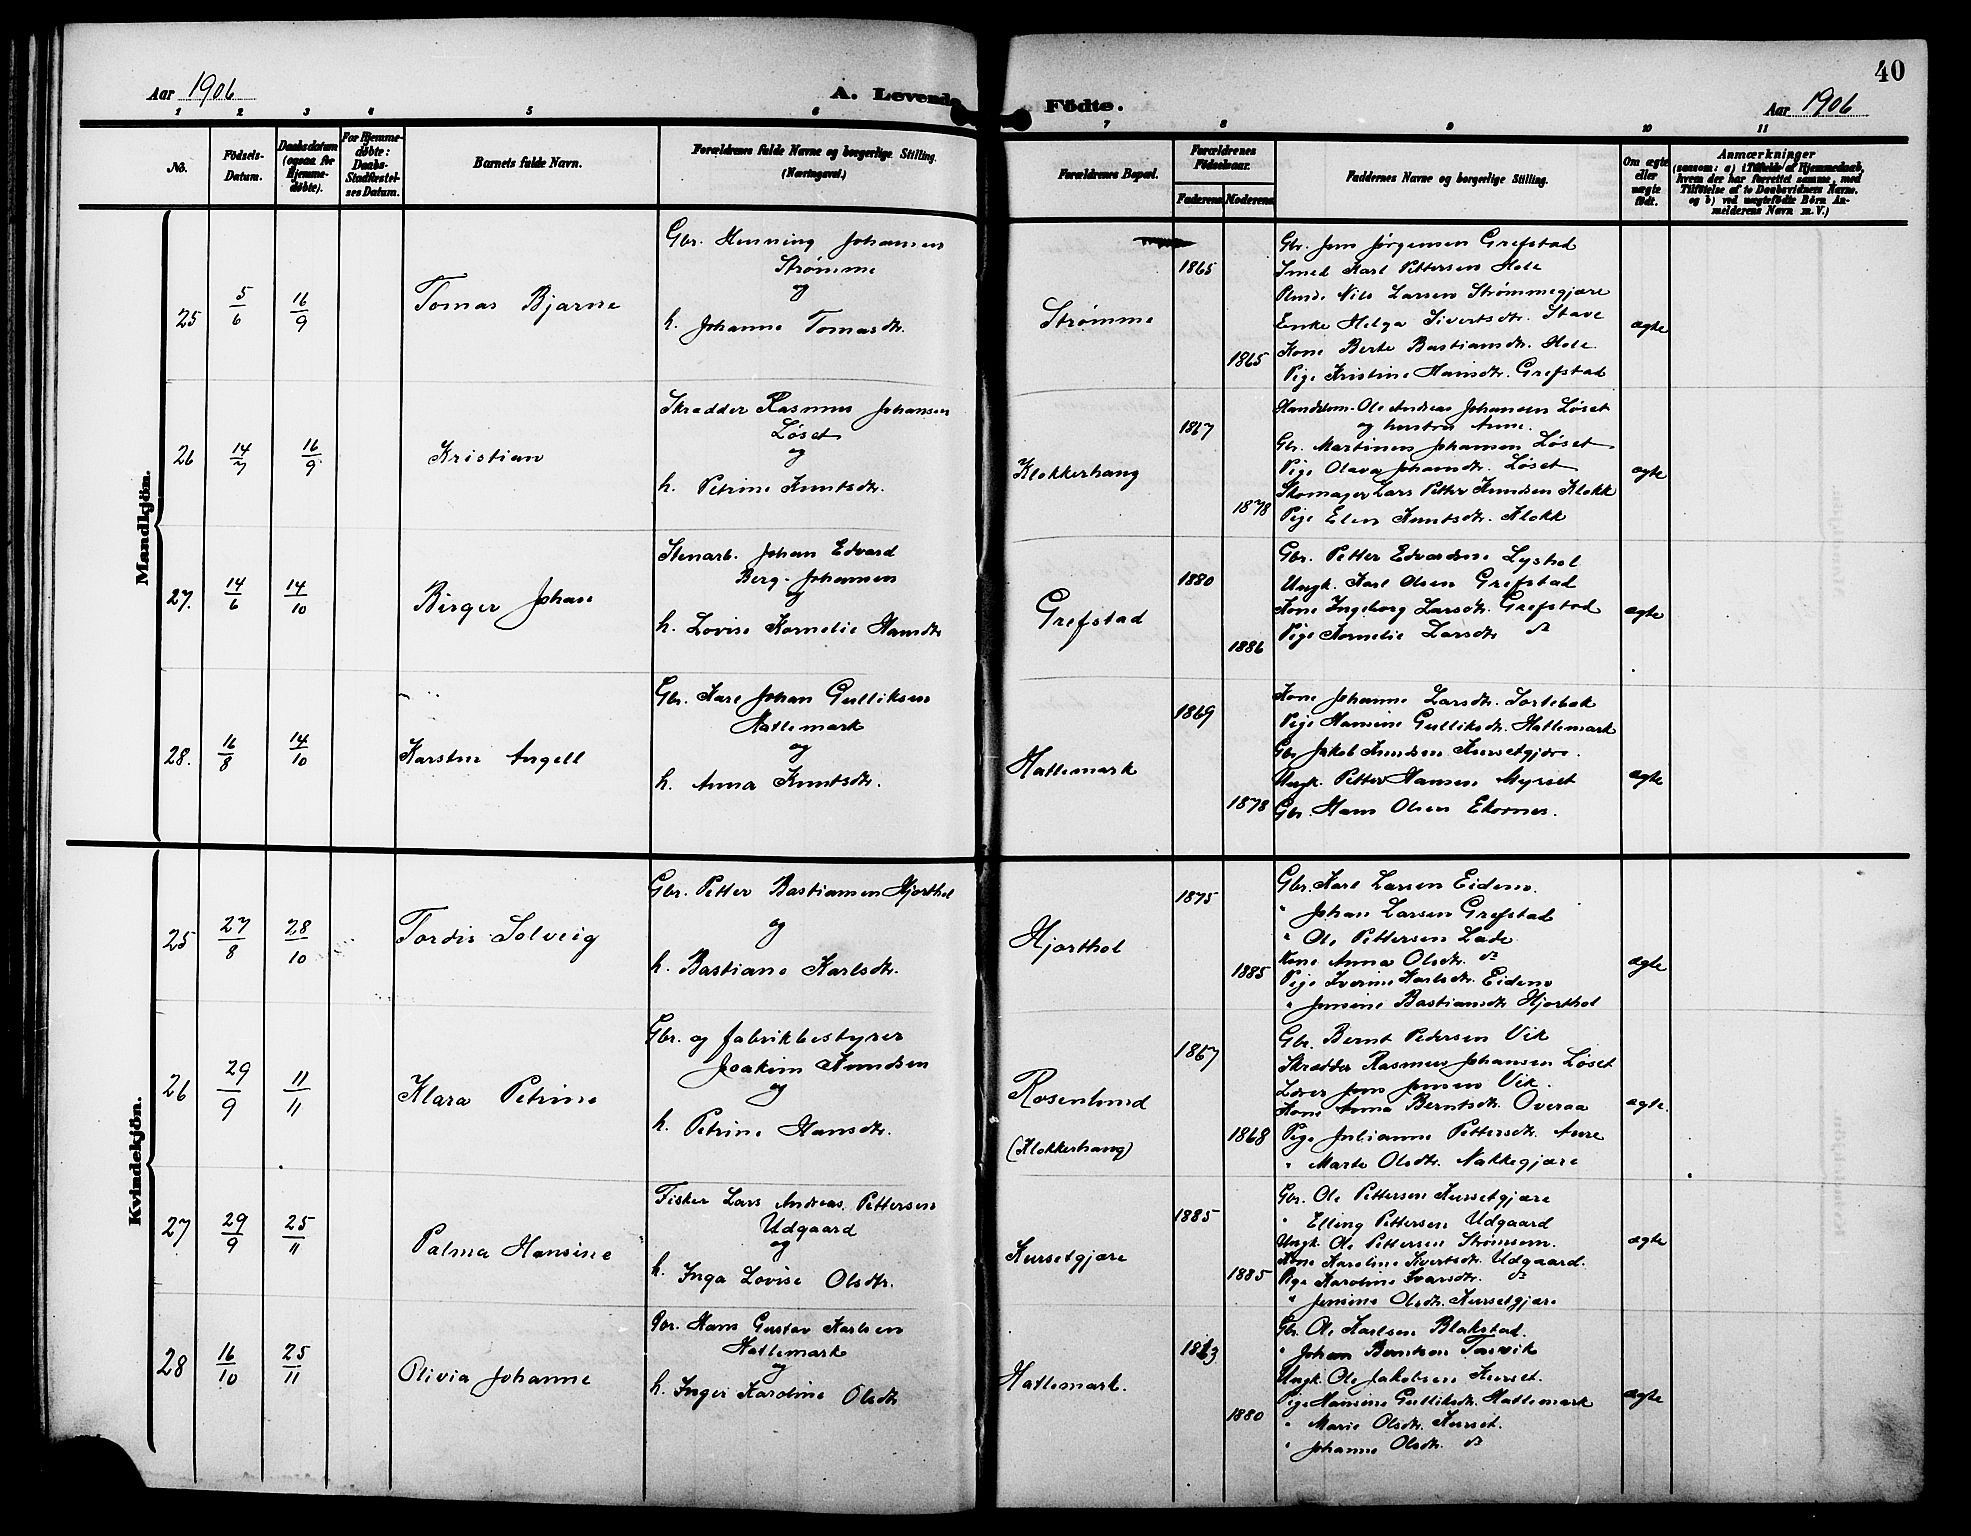 40
Aar 1906
A. Levende Födte.
Aar 1906
1 2 3 4 5 6 7 8 9 10 11
No.
Födsels-Datum.
Daabsdatum (ogsaa for Hjemmedøbte).
For Hjemmedøbte: Daabs-Stadfæstelses Datum.
Barnets fulde Navn.
Forældrenes fulde Navne og borgerlige Stilling.
(Næringsvei.)
Forældrenes Bopæl.
Forældrenes Födselsaar.
Faderens Moderens
Faddernes Navne og borgerlige Stilling.
Om ægte eller uægte født.
Anmærkninger
(saasom: a) i Tilfælde af Hjemmedaab, hvem der har forrettet samme, med Tilföielse af to Daabsvidners Navne. og b) ved uægtefödte Börn Anmelderens Navn m. V.)
Mandkjön.
25 5/6 16/9 Tomas Bjarne
Gbr. Henning Johansen
Strømme
og
h. Johanne Tomasdtr.
Strømme
1865
1865
Gbr. Jens Jørgensen Grefstad
Smed Karl Pettersen Hole
Nils Larsen Strømmegjære
Enke Helga Sivertsdtr. Stave
Kone Berte Bastiansdtr. Hole
Pige Kristine Hansdtr. Grefstad
ægte
26 14/7 16/9 Kristian
Skrædder Rasmus Johansen
Løset
og
h. Petrine Knutsdtr.
Klokkerhang
1867
1878
Handelsm. Ole Andreas Johansen Løset
og hustru Anne.
Gbr. Martinus Johansen Løset
Pige Olava Johansdtr. Løset
Skomager Lars Petter Knudsen Klokk
Pige Elen Knutsdtr. Klokk
ægte
27. 14/6 14/10 Birger Johan
Stenarb. Johan Edvard
Berg-Johansen
og
h. Lovise Kornelie Hansdtr
Grefstad
1880
1886
Gbr. Petter Edvardsen Lyshol
Ungk. Karl Olsen Grefstad
Kone Ingeborg Larsdtr. Grefstad
Pige Kornelie Larsdtr do
ægte
28. 16/8 14/10 Karsten Angell
Gbr. Karl Johan Gulliksen
Hattemark
og
h. Anna Knutsdtr.
Hattemark
1869
1878
Kone Johanne Larsdtr. Sortebak
Pige Hansine Gulliksdtr. Hattemark
Gbr Jakob Knudsen Kursetgjære.
Ungk. Petter Hansen Myrset
Gbr. Hans Olsen Ekornes.
ægte
Kvindekjön.
25 27/8 28/10 Tordis Solveig
Gbr. Petter Bastiansen Hjorthol
og
h. Bastiane Karlsdtr.
Hjorthol
1875
1885
Gbr. Karl Larsen Eidem.
" Johan Larsen Grefstad
" Ole Pettersen Lade
Kone Anna Olsdtr. do
Pige Iverine Karlsdtr. Eidem
" Jensine Bastiansdtr Hjorthol
ægte
26 29/9 11/11 Klara Petrine
Gbr. og fabrikbestyrer
Joakim Knudsen
og
h. Petrine Hansdtr.
Rosenlund
(Klokkerhang)
1867
1868
Gbr. Bernt Pedersen Vik
Skrædder Rasmus Johansen Løset
Lærer Jens Jensen Vik.
Kone Anna Berntsdtr. Overaa
Pige Julianne Pettersdtr. Aure
" Marte Olsdtr. Nakkegjære
ægte.
27 29/9 25/11 Palma Hansine
Fisker Lars Andreas Pettersen
Udgaard
og
h. Inga Lovise Olsdtr.
Kursetgjære
1885
1885
Gbr. Ole Pettersen Kursetgjære
" Elling Pettersen Udgaard
Ungk. Ole Pettersen Strømsem.
Kone Karoline Sivertsdtr. Udgaard.
Pige Karoline Ivarsdtr. do
" Jensine Olsdtr. Kursetgjære
ægte
28 16/10 25/11 Olivia Johanne
Gbr. Hans Gustav Karlsen
Hattemark
og
h. Inger Karoline Olsdtr
Hattemark.
1863
1880
Gbr. Ole Karlsen Blakstad.
" Johan Berntsen Tusvik
Ungk. Ole Jakobsen Kurset.
Pige Hansine Gulliksdtr. Hattemark
" Marie Olsdtr. Kurset.
" Johanne Olsdtr. do
ægte